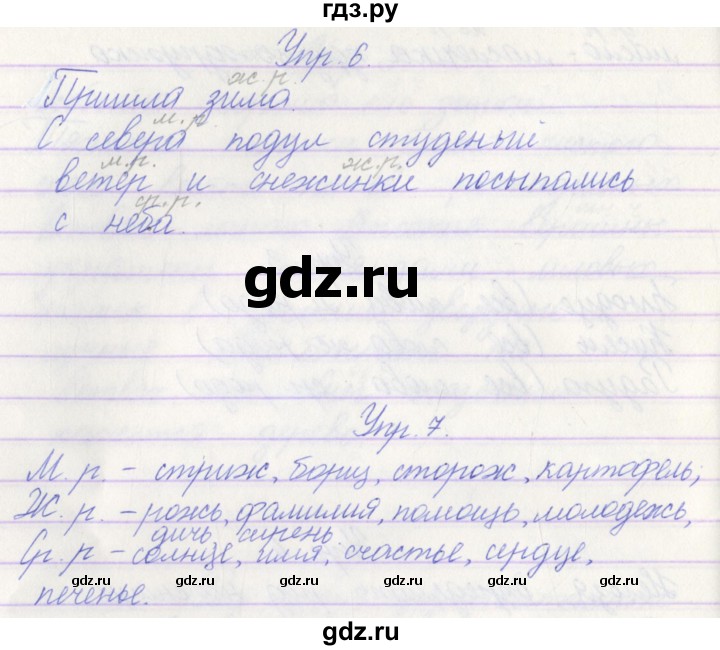 гдз.ру
Упр. 6.
ж.р.
Пришла зима.
м.р.
С севера подул студеный
м.р. ж.р.
ветер и снежинки посыпались
ср.р.
с неба.
gdz.ru
Упр. 7.
М. р. – стриж, борщ, сторож, картофель;
Ж. р. – рожь, фамилия, помощь, молодежь,
дичь, сирень
Ср. р – солнце, имя, счастье, сердце,
gdz.ru gdz.ru gdz.ru gdz.ru gdz.ru
печенье.
gdz.ru